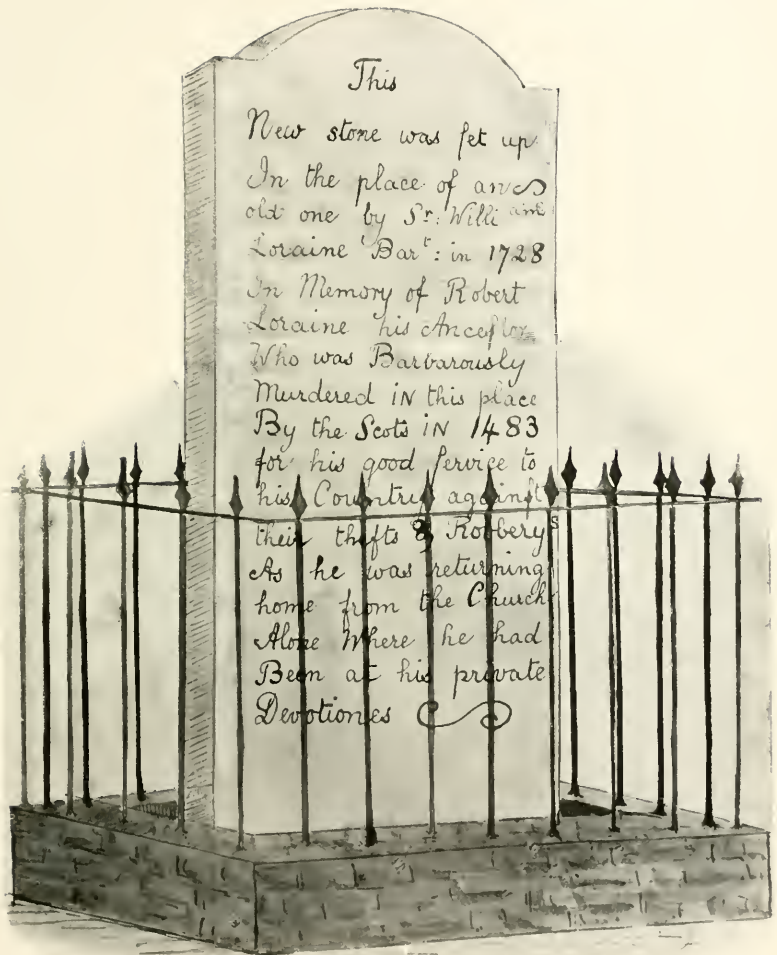 This
New stone was ſet up
In the place of an
old one by Sr: William
Loraine Bart: in 1728
In Memory of Robert
Loraine his Anceſtor
Who was Barbarously
Murdered iN this place
By the Scots iN 1483
for his good ſervice to
his Country againſt
their thefts & Robberys
As he was returning
home from the Church
Alone Where he had
Been at his private
Devotiones